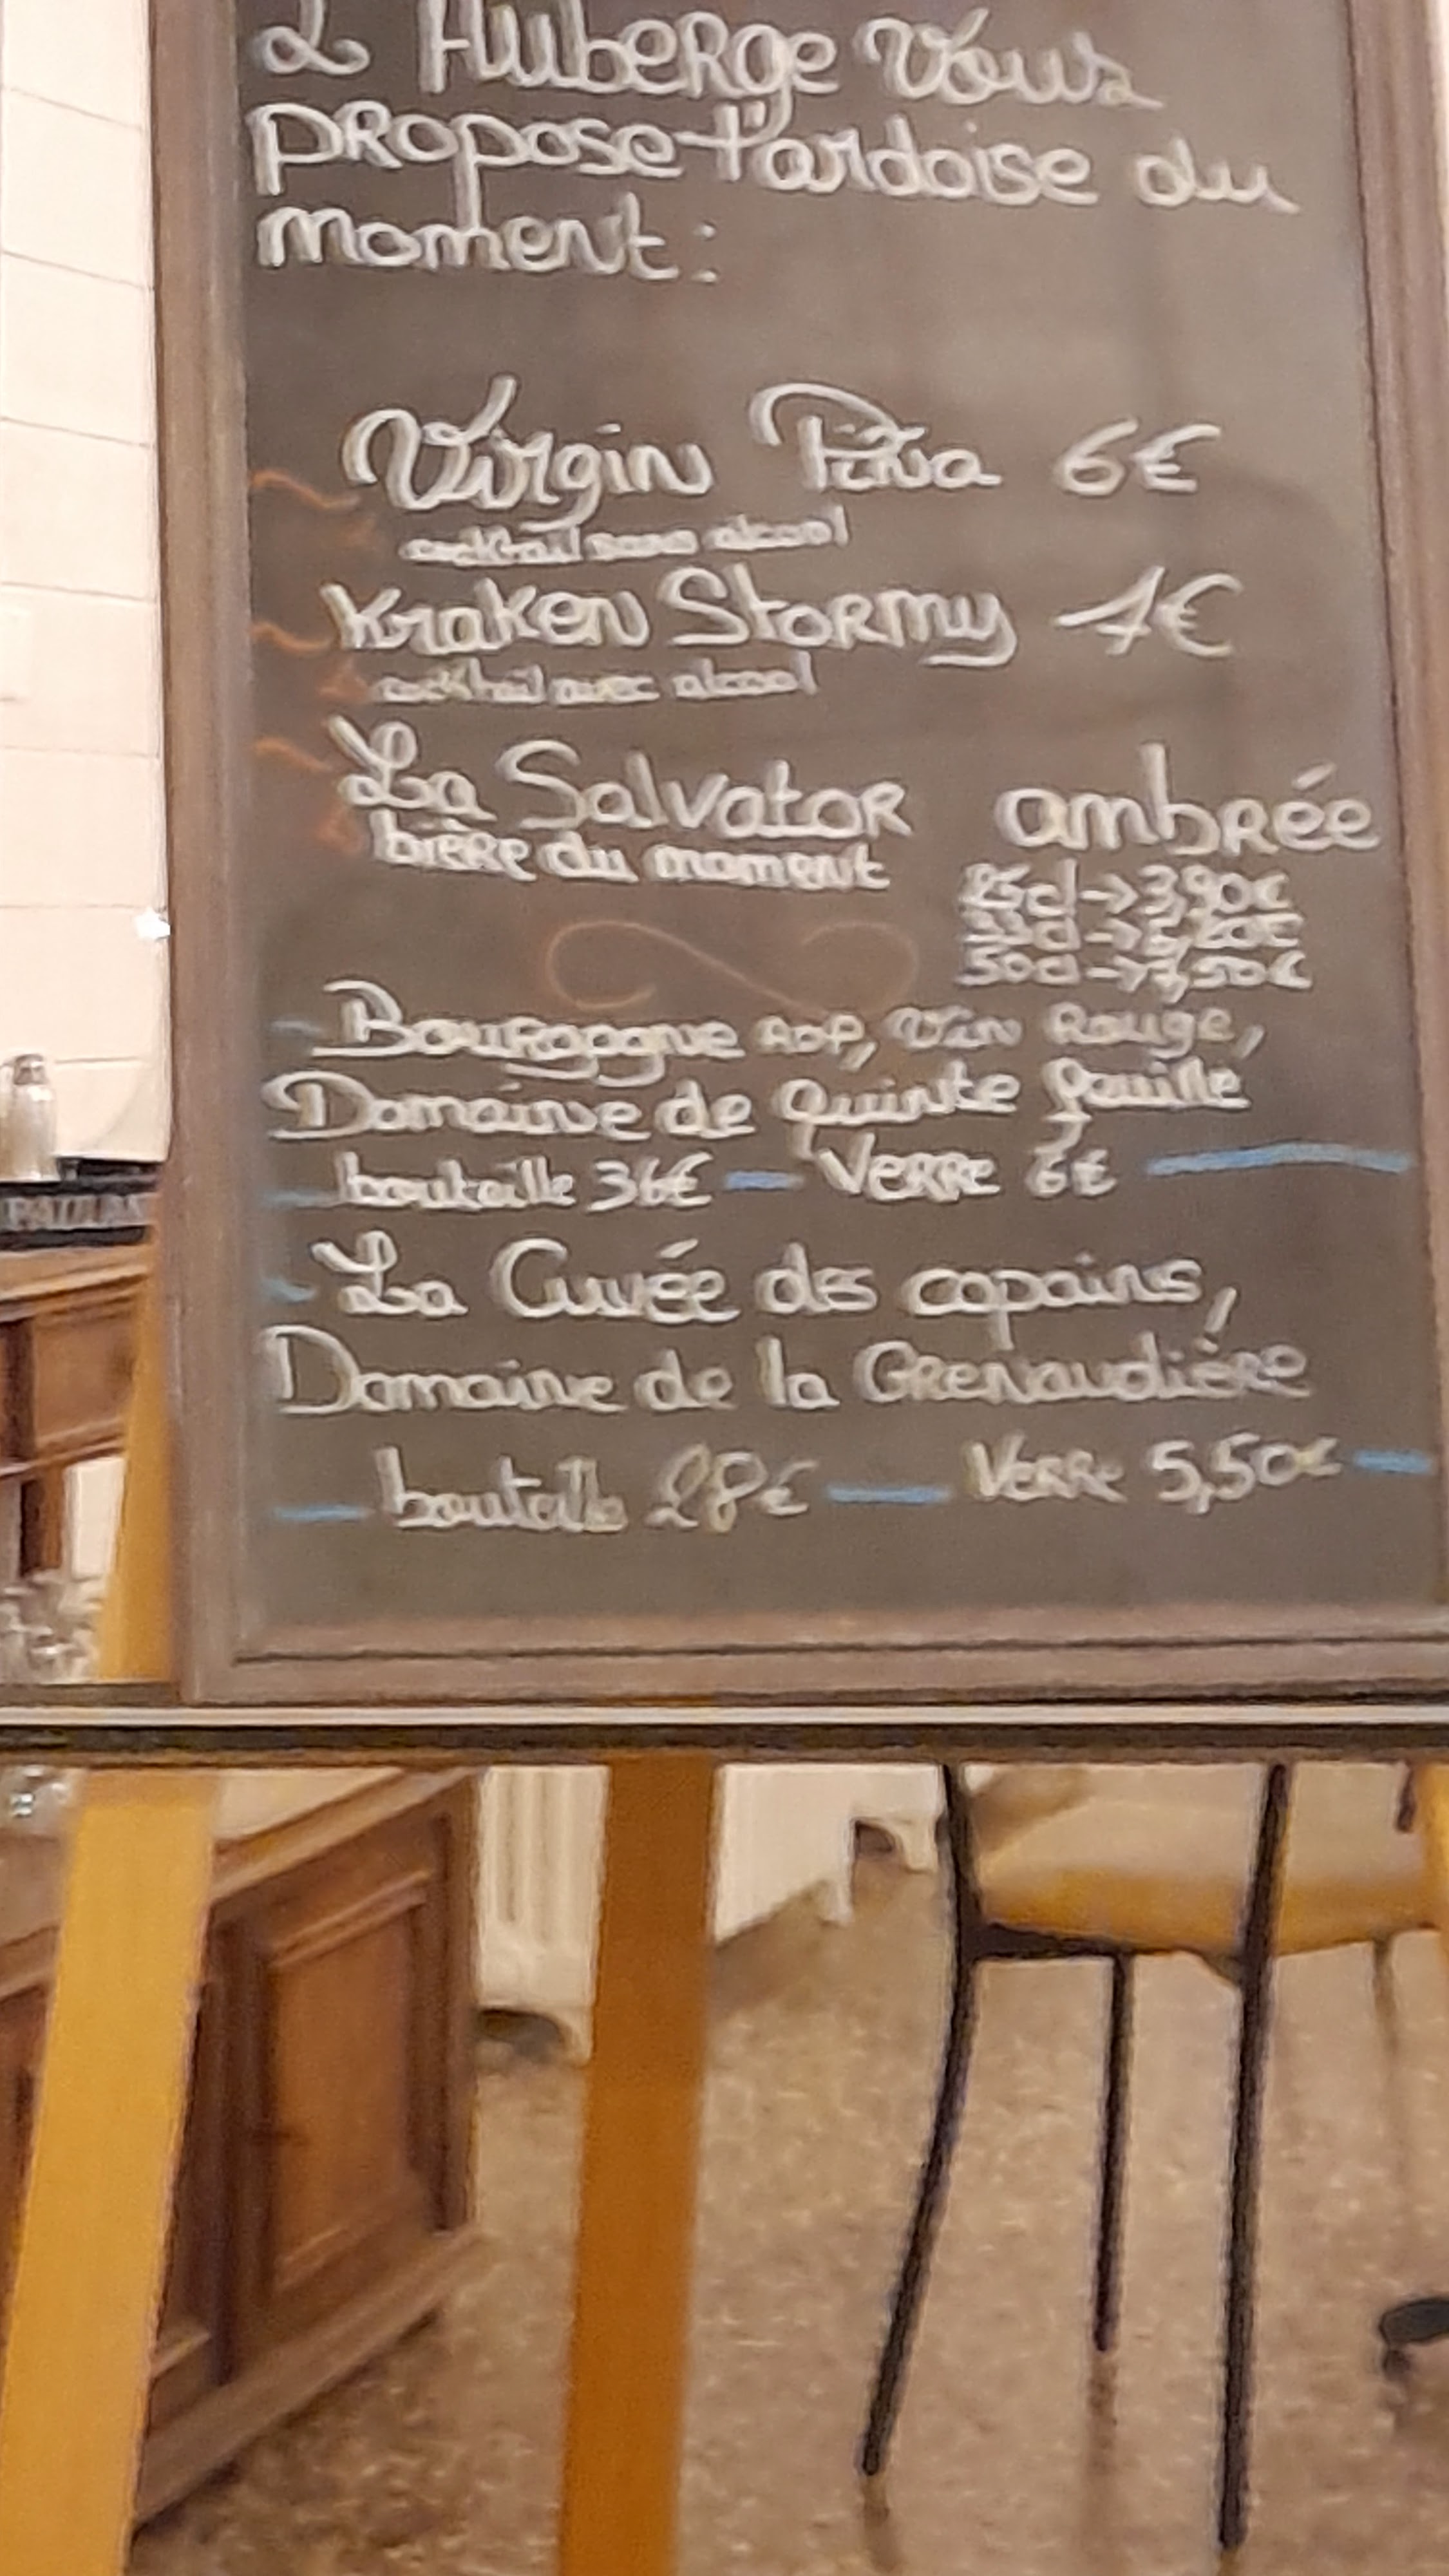 L'Auberge Vous
propose l'ardoise du
moment :
Virgin Piña 6€
cocktail sans alcool
Kraken Stormy 7€
cocktail avec alcool
La Salvator ambrée
bière du moment
25cl → 3,90€
50cl → 7,50€
Bourgogne AOP, Vin Rouge,
Domaine de Quinte feuille
bouteille 36€ — Verre 6€
La Cuvée des copains,
Domaine de la Grenaudière
bouteille 28€ — Verre 5,50€